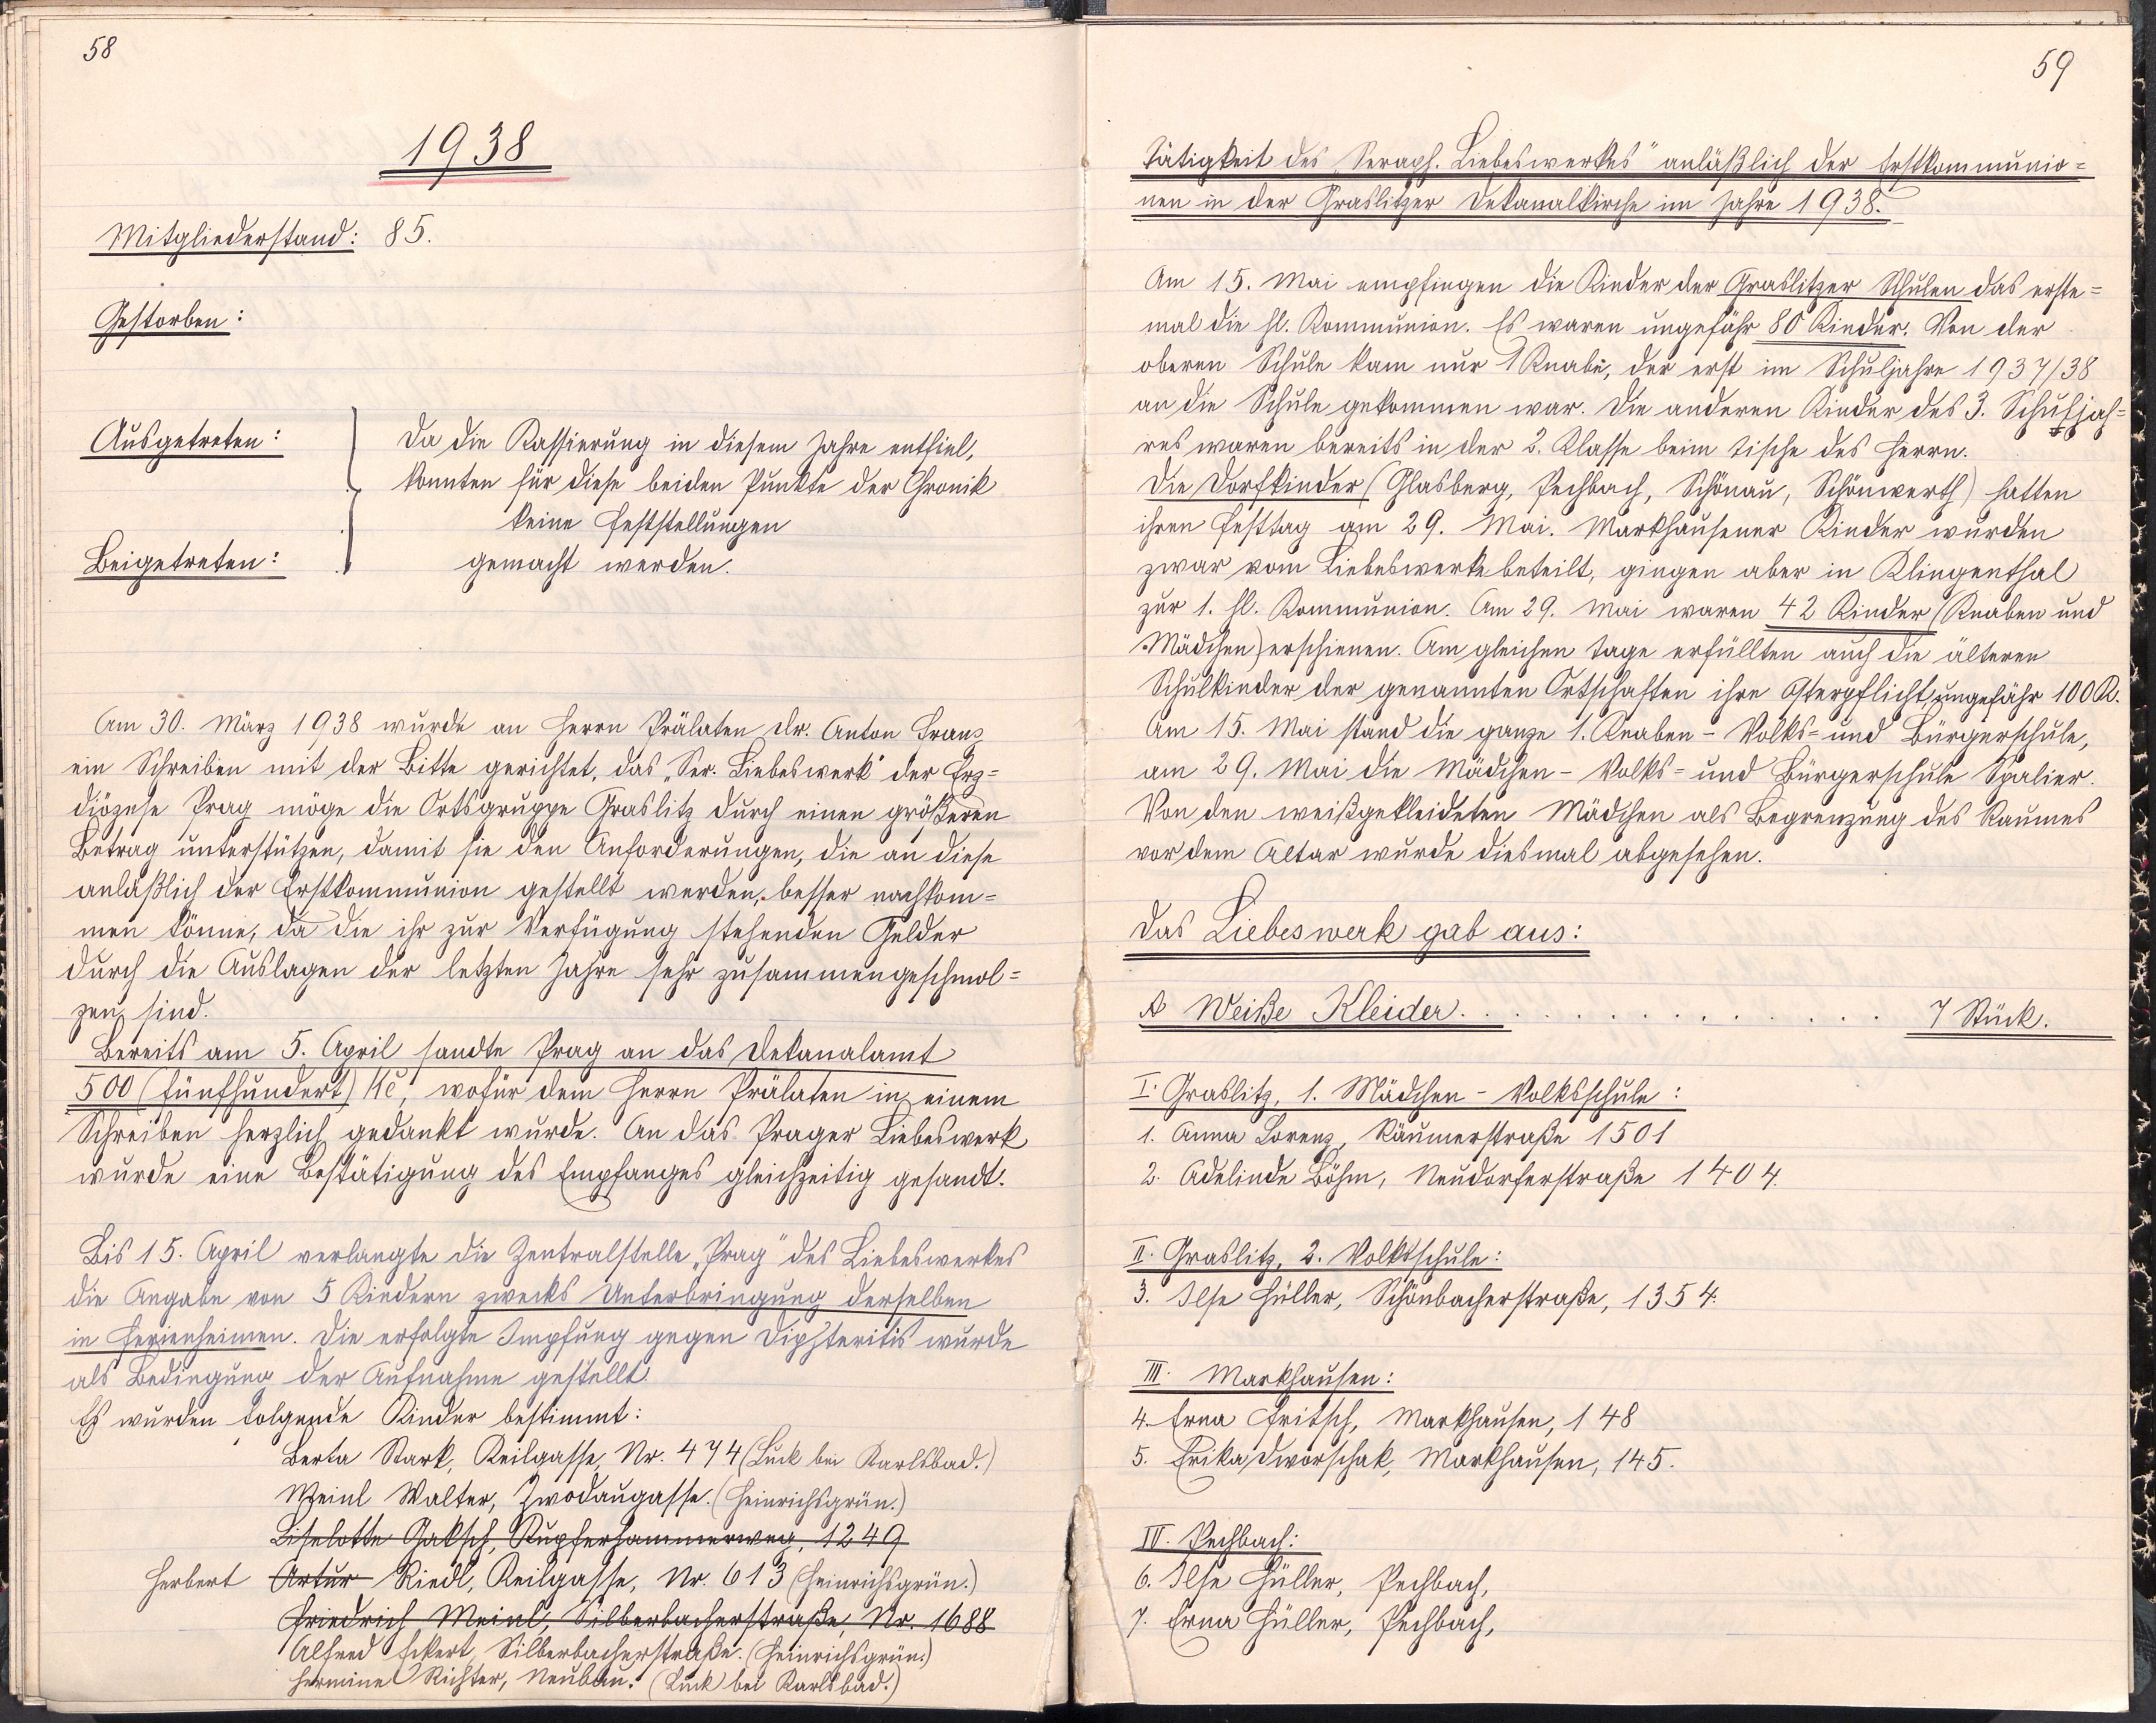 58
1938
Mitgliederstand: 85.
Gestorben:
Ausgetreten:
Beigetreten:
Da die Kassierung in diesem Jahre entfiel,
konnten für diese beiden Punkte der Chronik
keine Feststellungen
gemacht werden.
Am 30. März 1938 wurde an Herrn Prälaten Dr. Anton Franz
ein Schreiben mit der Bitte gerichtet, das „Ser. Liebeswerk" der Erz=
diözese Prag möge die Ortsgruppe Graslitz durch einen größeren
Betrag unterstützen, damit sie den Anforderungen, die an diese
anläßlich der Erstkommunion gestellt werden, besser nachkom=
men könne, da die ihr zur Verfügung stehenden Gelder
durch die Auslagen der letzten Jahre sehr zusammengeschmol=
zen sind.
Bereits am 5. April sandte Prag an das Dekanalamt
500 (fünfhundert) Kč, wofür dem Herrn Prälaten in einem
Schreiben herzlich gedankt wurde. An das Prager Liebeswerk
wurde eine Bestätigung des Empfanges gleichzeitig gesandt.
Bis 15. April verlangte die Zentralstelle „Prag" des Liebeswerkes
die Angabe von 5 Kindern zwecks Unterbringung derselben
in Ferienheimen. Die erfolgte Impfung gegen Diphteritis wurde
als Bedingung der Aufnahme gestellt.
Es wurden folgende Kinder bestimmt:
Berta Stark, Keilgasse, Nr. 474 (Luck bei Karlsbad.)
Meinl Walter, Zwodaugasse. (Heinrichsgrün.)
Liselotte Gaksch, Kupferhammerweg, 1249
Herbert Artur Riedl, Keilgasse, Nr. 613 (Heinrichsgrün.)
Friedrich Meinl, Silberbacherstraße, Nr. 1688
Alfred Eckert, Silberbacherstraße. (Heinrichsgrün.)
Hermine Richter, Neubau. (Luck bei Karlsbad.)
59
Tätigkeit des „Seraph. Liebeswerkes" anläßlich der Erstkommunio=
nen in der Graslitzer Dekanalkirche im Jahre 1938.
Am 15. Mai empfingen die Kinder der Graslitzer Schulen das erste=
mal die hl. Kommunion. Es waren ungefähr 80 Kinder. Von der
oberen Schule kam nur 1 Knabe, der erst im Schuljahre 1937/38
an die Schule gekommen war. Die anderen Kinder des 3. Schuljah=
res waren bereits in der 2. Klasse beim Tische des Herrn.
Die Dorfkinder (Glasberg, Pechbach, Schönau, Schönwerth) hatten
ihren Festtag am 29. Mai. Markhausener Kinder wurden
zwar vom Liebeswerke beteilt, gingen aber in Klingenthal
zur 1. hl. Kommunion. Am 29. Mai waren 42 Kinder (Knaben und
Mädchen) erschienen. Am gleichen Tage erfüllten auch die älteren
Schulkinder der genannten Ortschaften ihre Osterpflicht, ungefähr 100 K.
Am 15. Mai stand die ganze 1. Knaben-Volks= und Bürgerschule,
am 29. Mai die Mädchen-Volks= und Bürgerschule Spalier.
Von den weißgekleideten Mädchen als Begrenzung des Raumes
vor dem Altar wurde diesmal abgesehen.
Das Liebeswerk gab aus:
A Weiße Kleider. . . . . . . . . . . . . . 7 Stück.
I. Graslitz, 1. Mädchen-Volksschule:
1. Anna Lorenz, Räumerstraße 1501
2. Adelinde Böhm, Neudorferstraße 1404.
II. Graslitz, 2. Volksschule:
3. Ilse Hüller, Schönbacherstraße, 1354.
III. Markhausen:
4. Erna Fritsch, Markhausen, 148
5. Erika Dworschak, Markhausen, 145.
IV. Pechbach:
6. Ilse Hüller, Pechbach,
7. Erna Hüller, Pechbach,